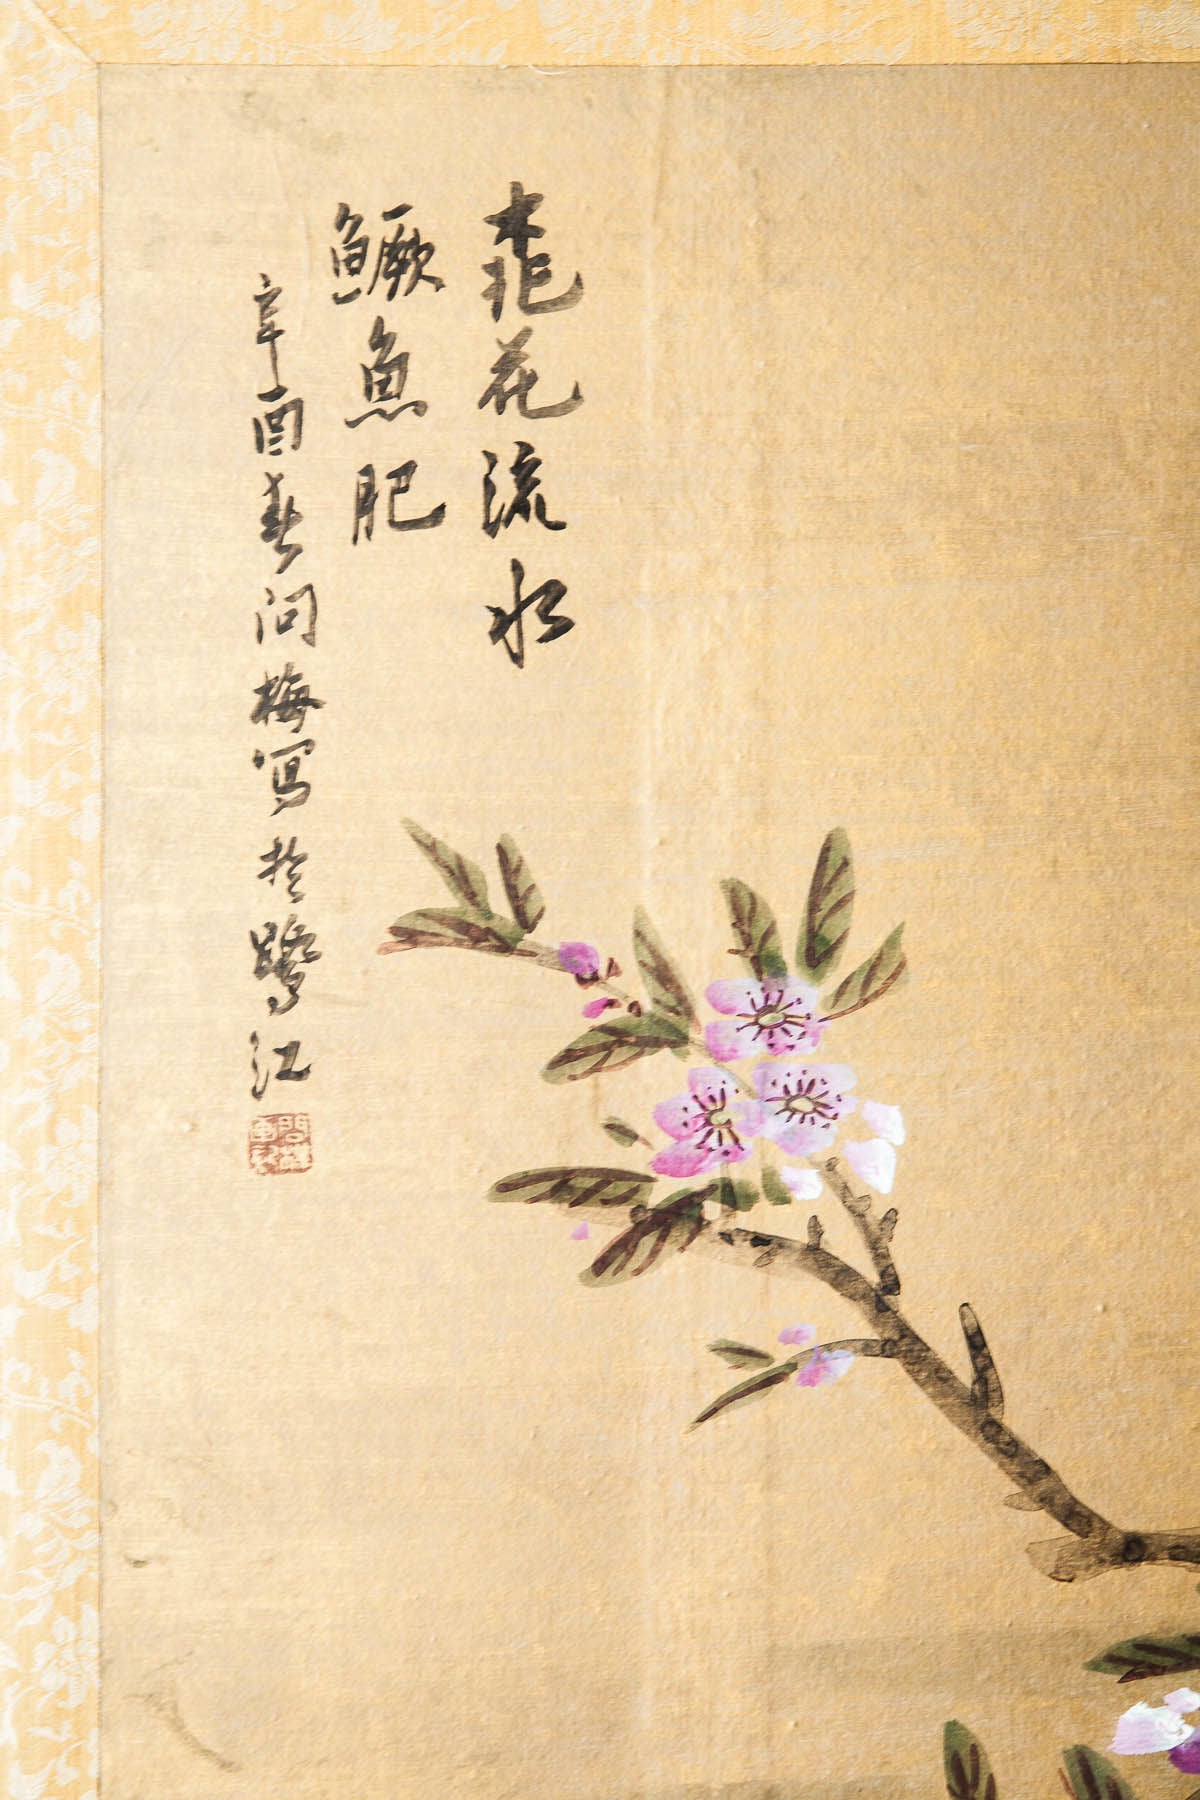 桃花流水
鱖魚肥
辛酉春问梅写於鹭江